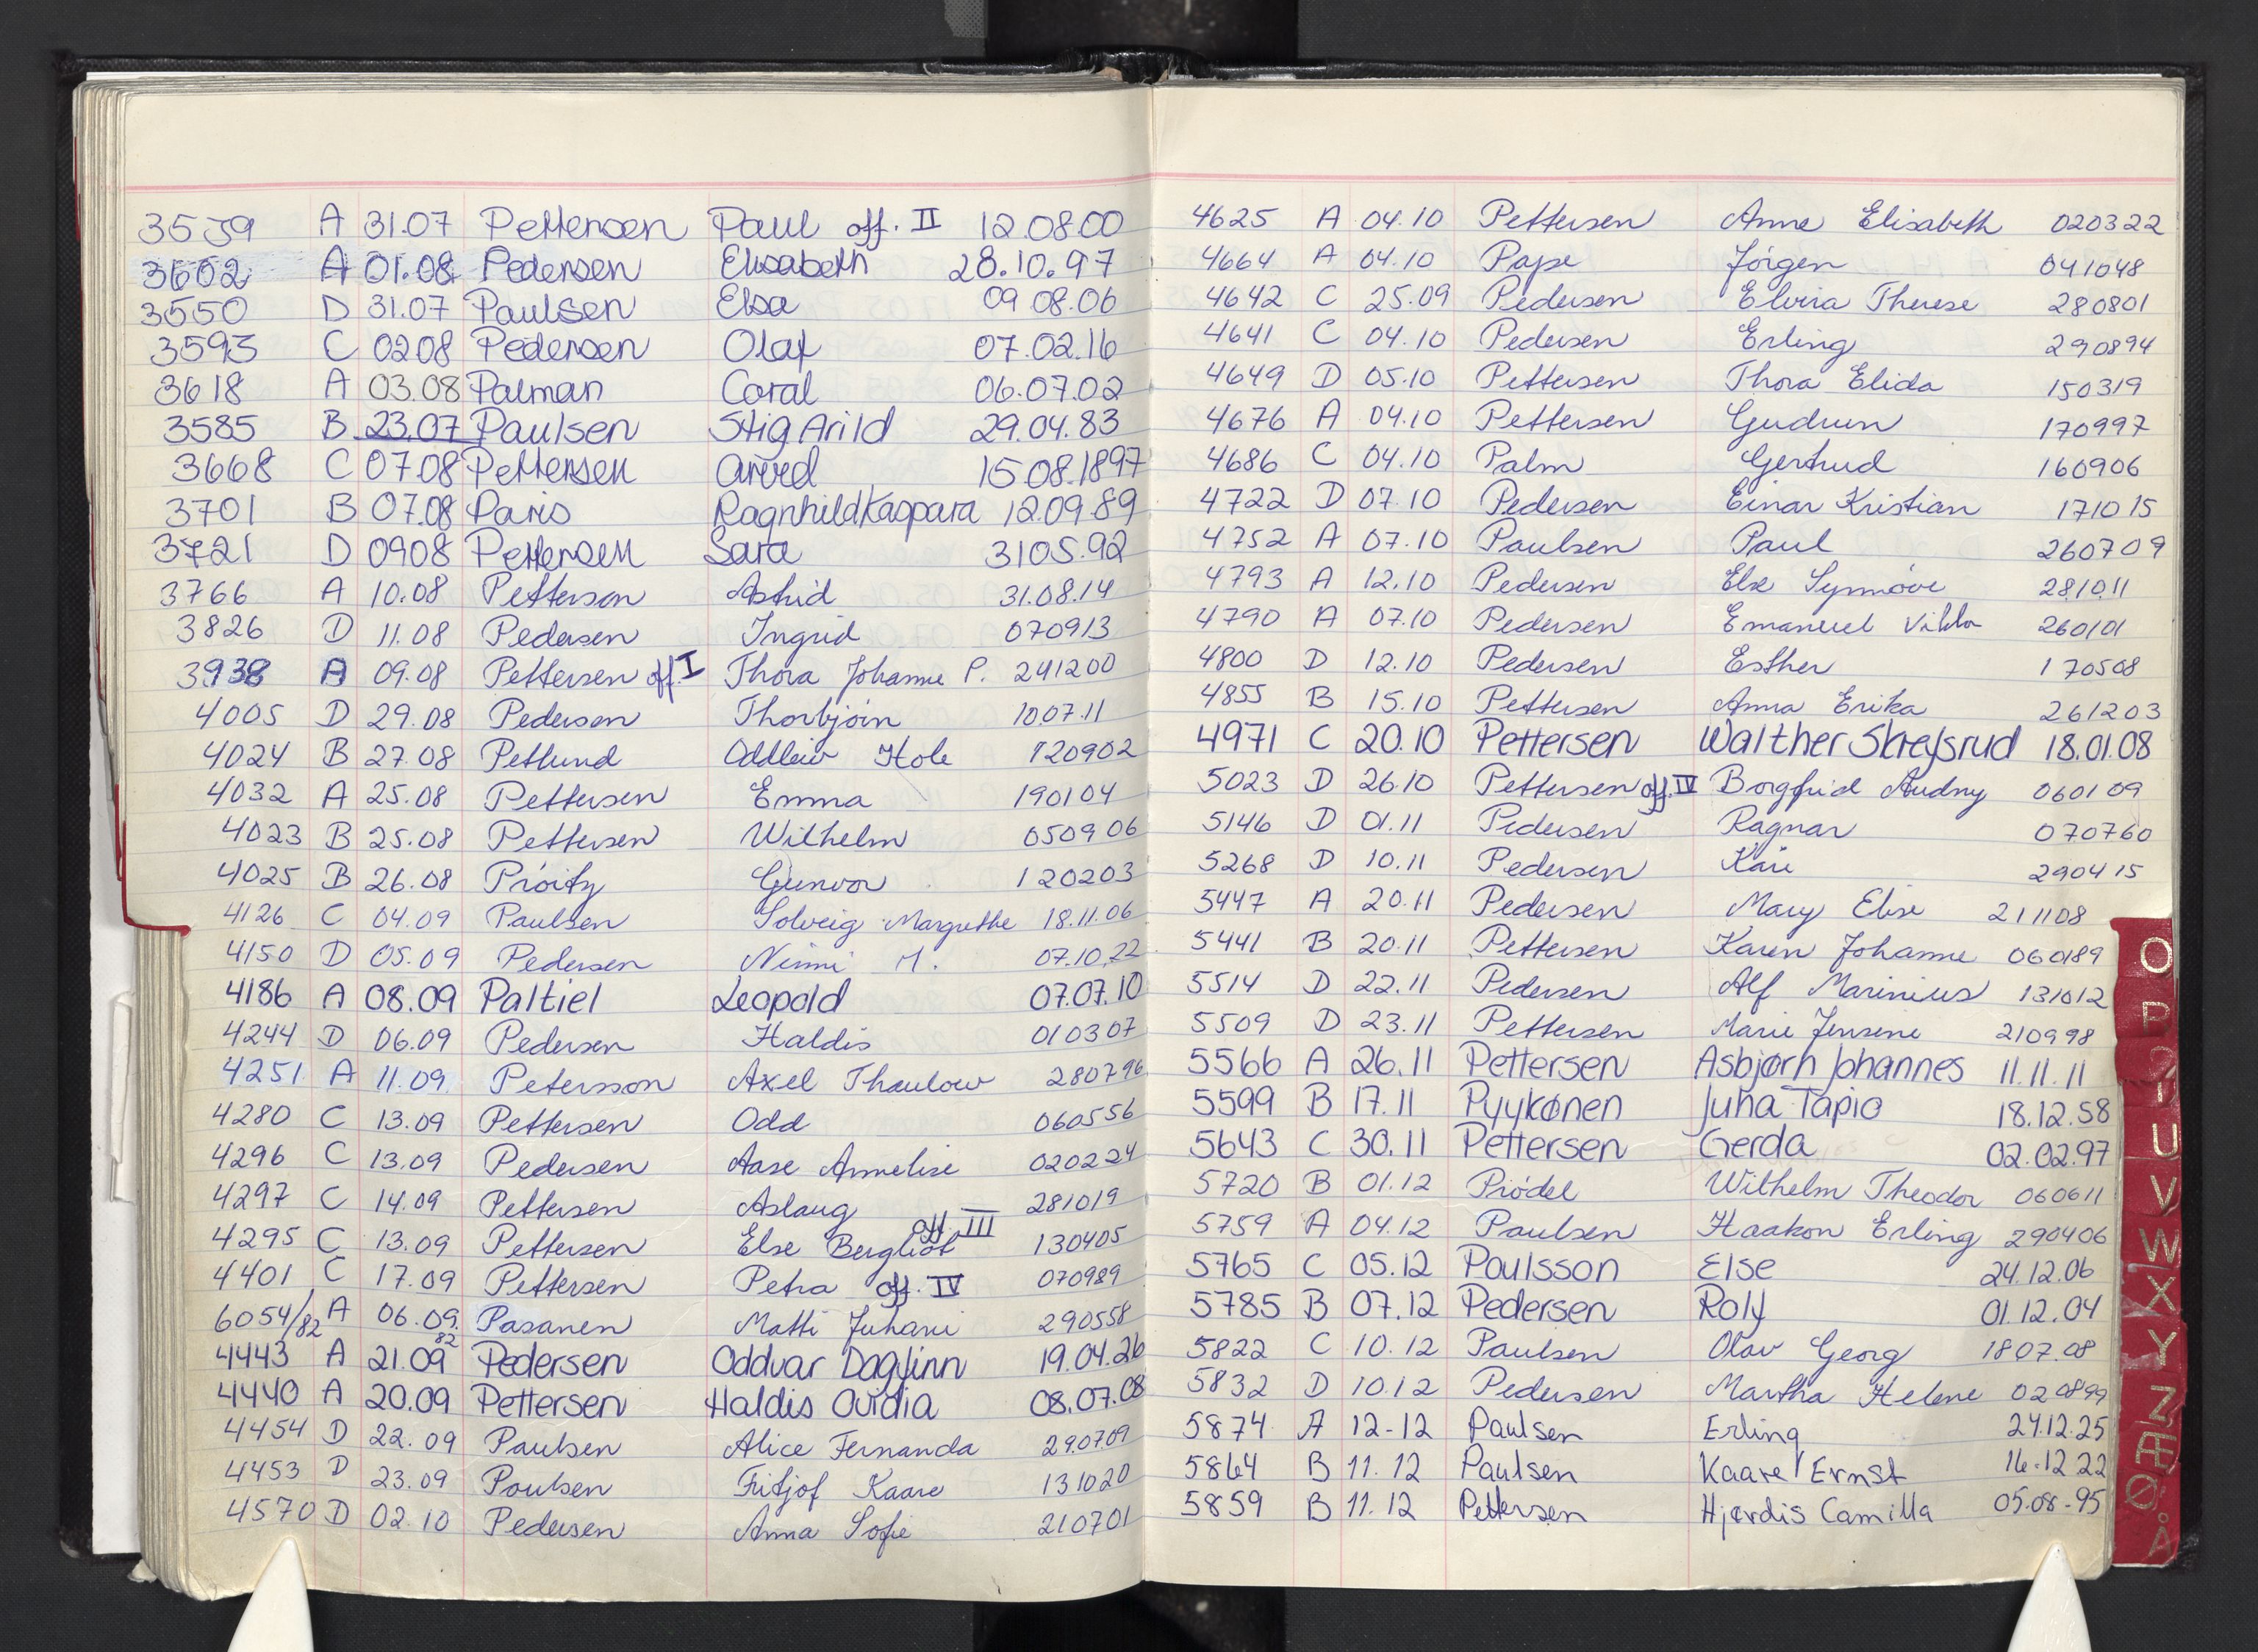 3539 A 31.07 Pettersen Paul off. II 12.08.00
3602 A 01.08 Pedersen Elisabeth 28.10.97
3550 D 31.07 Paulsen Elsa 09 08.06
3593 C 0208 Pedersen Olaf 07.02.16
3618 A 03.08 Palman Coral 06.07.02
3585 B 23.07 Paulsen Stig Arild 29.04.83
3668 C 07.08 Pettersen Arvid 15.08.1897
3701 B 07.08 Paris Ragnhild Kaspara 12.09.89
3721 D 0908 Pettersen Sara 3105.92
3766 A 10.08 Petterson Astrid 31.08.14
3826 D 11.08 Pedersen Ingrid 070913
3938 A 09.08 Pettersen off. I Thora Johanne P. 241200
4005 D 29.08 Pedersen Thorbjörn 1007.11
4024 B 27.08 Petlund Oddleiv Hole 120902
4032 A 25.08 Pettersen Emma 190104
4023 B 25.08 Pettersen Wilhelm 050906
4025 B 26.08 Gunvor 120203
4126 C 04.09 Paulsen Solveig Margrethe 18.11.06
4150 D 05.09 Pedersen Ninni M. 07.10.22
4186 A 08.09 Paltiel Leopold 07.07.10
4244 D 06.09 Pedersen Haldis 010307
4251 A 11.09. Petersson Axel Thaulow 280796
4280 C 13.09 Pettersen Odd 060556
4296 C 13.09 Pedersen Aase Annelise 020224
4297 C 14.09 Pettersen Aslaug 281019
4295 C 13.09 Pettersen Else Bergliot off III 130405
4401 C 17.09 Pettersen Petra off. IV 070989
6054/82 A 06.09.82 Pasanen Matti Juhani 290558
4443 A 21.09 Pedersen Oddvar Dagfinn 19.04.26
4440 A 20.09 Pettersen Haldis Ovidia 08.07.08
4454 D 22.09 Paulsen Alice Fernanda 290709
4453 D 23.09 Poulsen Fritjof Kaare 131020
4570 D 02.10 Pedersen Anna Sofie 210701
4625 A 04.10 Pettersen Anne Elisabeth 020322
4664 A 04.10 Pape Jörgen 041048
4642 C 25.09 Pedersen Elvira Therese 280801
4641 C 04.10 Pedersen Erling 290894
4649 D 05.10 Pettersen Thora Elida 150319
4676 A 04.10 Pettersen Gudrun 170997
4686 C 04.10 Palm Gertrud 160906
4722 D 07.10 Pedersen Einar Kristian 171015
4752 A 07.10 Paulsen Paul 260709
4793 A 12.10 Pedersen Else Synnöve 281011
4790 A 07.10 Pedersen Emanuel Viktor 260101
4800 D 12.10 Pedersen Esther 170508
4855 B 15.10 Pettersen Anna Erika 261203
4971 C 20.10 Pettersen Walther Skrejsrud 18.01.08
5023 D 26.10 Pettersen off. IV Borgfrid Audny 060109
5146 D 01.11 Pedersen Ragnar 070760
5268 D 10.11 Pedersen Kari 290415
5447 A 20.11 Pedersen Mary Elise 211108
5441 B 20.11 Pettersen Karen Johanne 060189
5514 D 22.11 Pedersen Alf Marinius 131012
5509 D 23.11 Pettersen Marie Jensine 210998
5566 A 26.11 Pettersen Asbjørn Johannes 11.11.11
5599 B 17.11 Pyykønen Juha Tapio 18.12.58
5643 C 30.11 Pettersen Gerda 02.02.97
5720 B 01.12 Prödel Wilhelm Theodor 060611
5759 A 04.12 Paulsen Haakon Erling 290406
5765 C 05.12 Poulsson Else 24.12.06
5785 B 07.12 Pedersen Rolf 01.12.04
5822 C 10.12 Paulsen Olav Georg 1807.08
5832 D 10.12 Pedersen Martha Helene 020899
5874 A 12-12 Paulsen Erling 24.12.25
5864 B 11.12 Paulsen Kaare Ernst 16.12 22
5859 B 11.12 Pettersen Hjørdis Camilla 05.08-95
O
P
U
V
W
X
Y
Z
Æ
Ø
Å